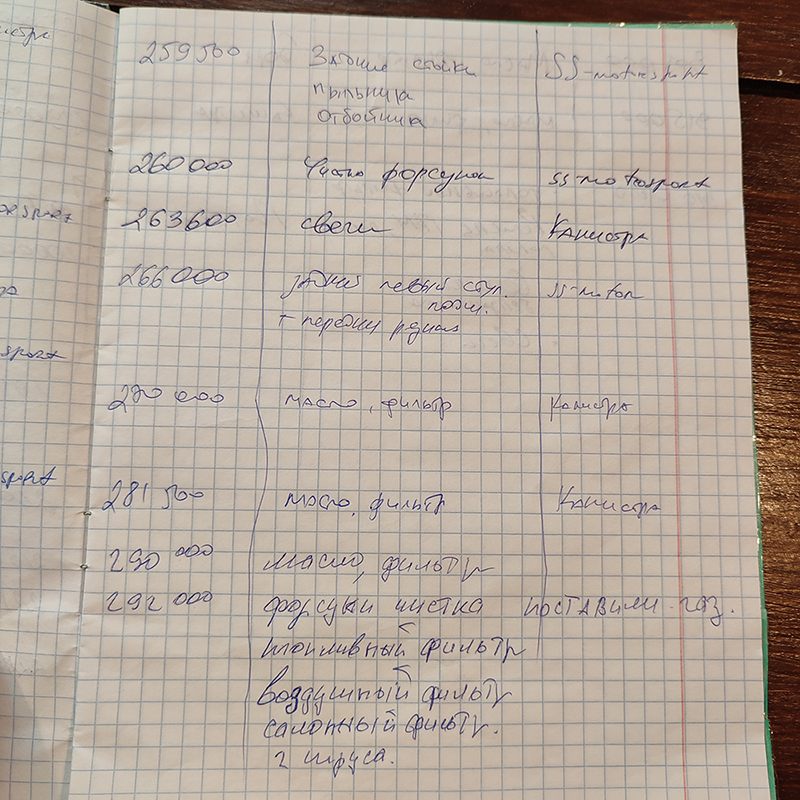 истра
259500 Задние стойки SS-motorsport
пыльника
отбойника
260 000 Чистка форсунок SS-motorsport
263600 свечи Канистра
266 000 задний левый ступ. SS-motor
подш.
+ передний
sport
270 000 масло, фильтр Канистра
sport
281 500 масло, фильтр Канистра
290 000 масло, фильтр
292 000 форсунки чистка поставили газ.
топливный фильтр
воздушный фильтр
салонный фильтр.
2 шруса.